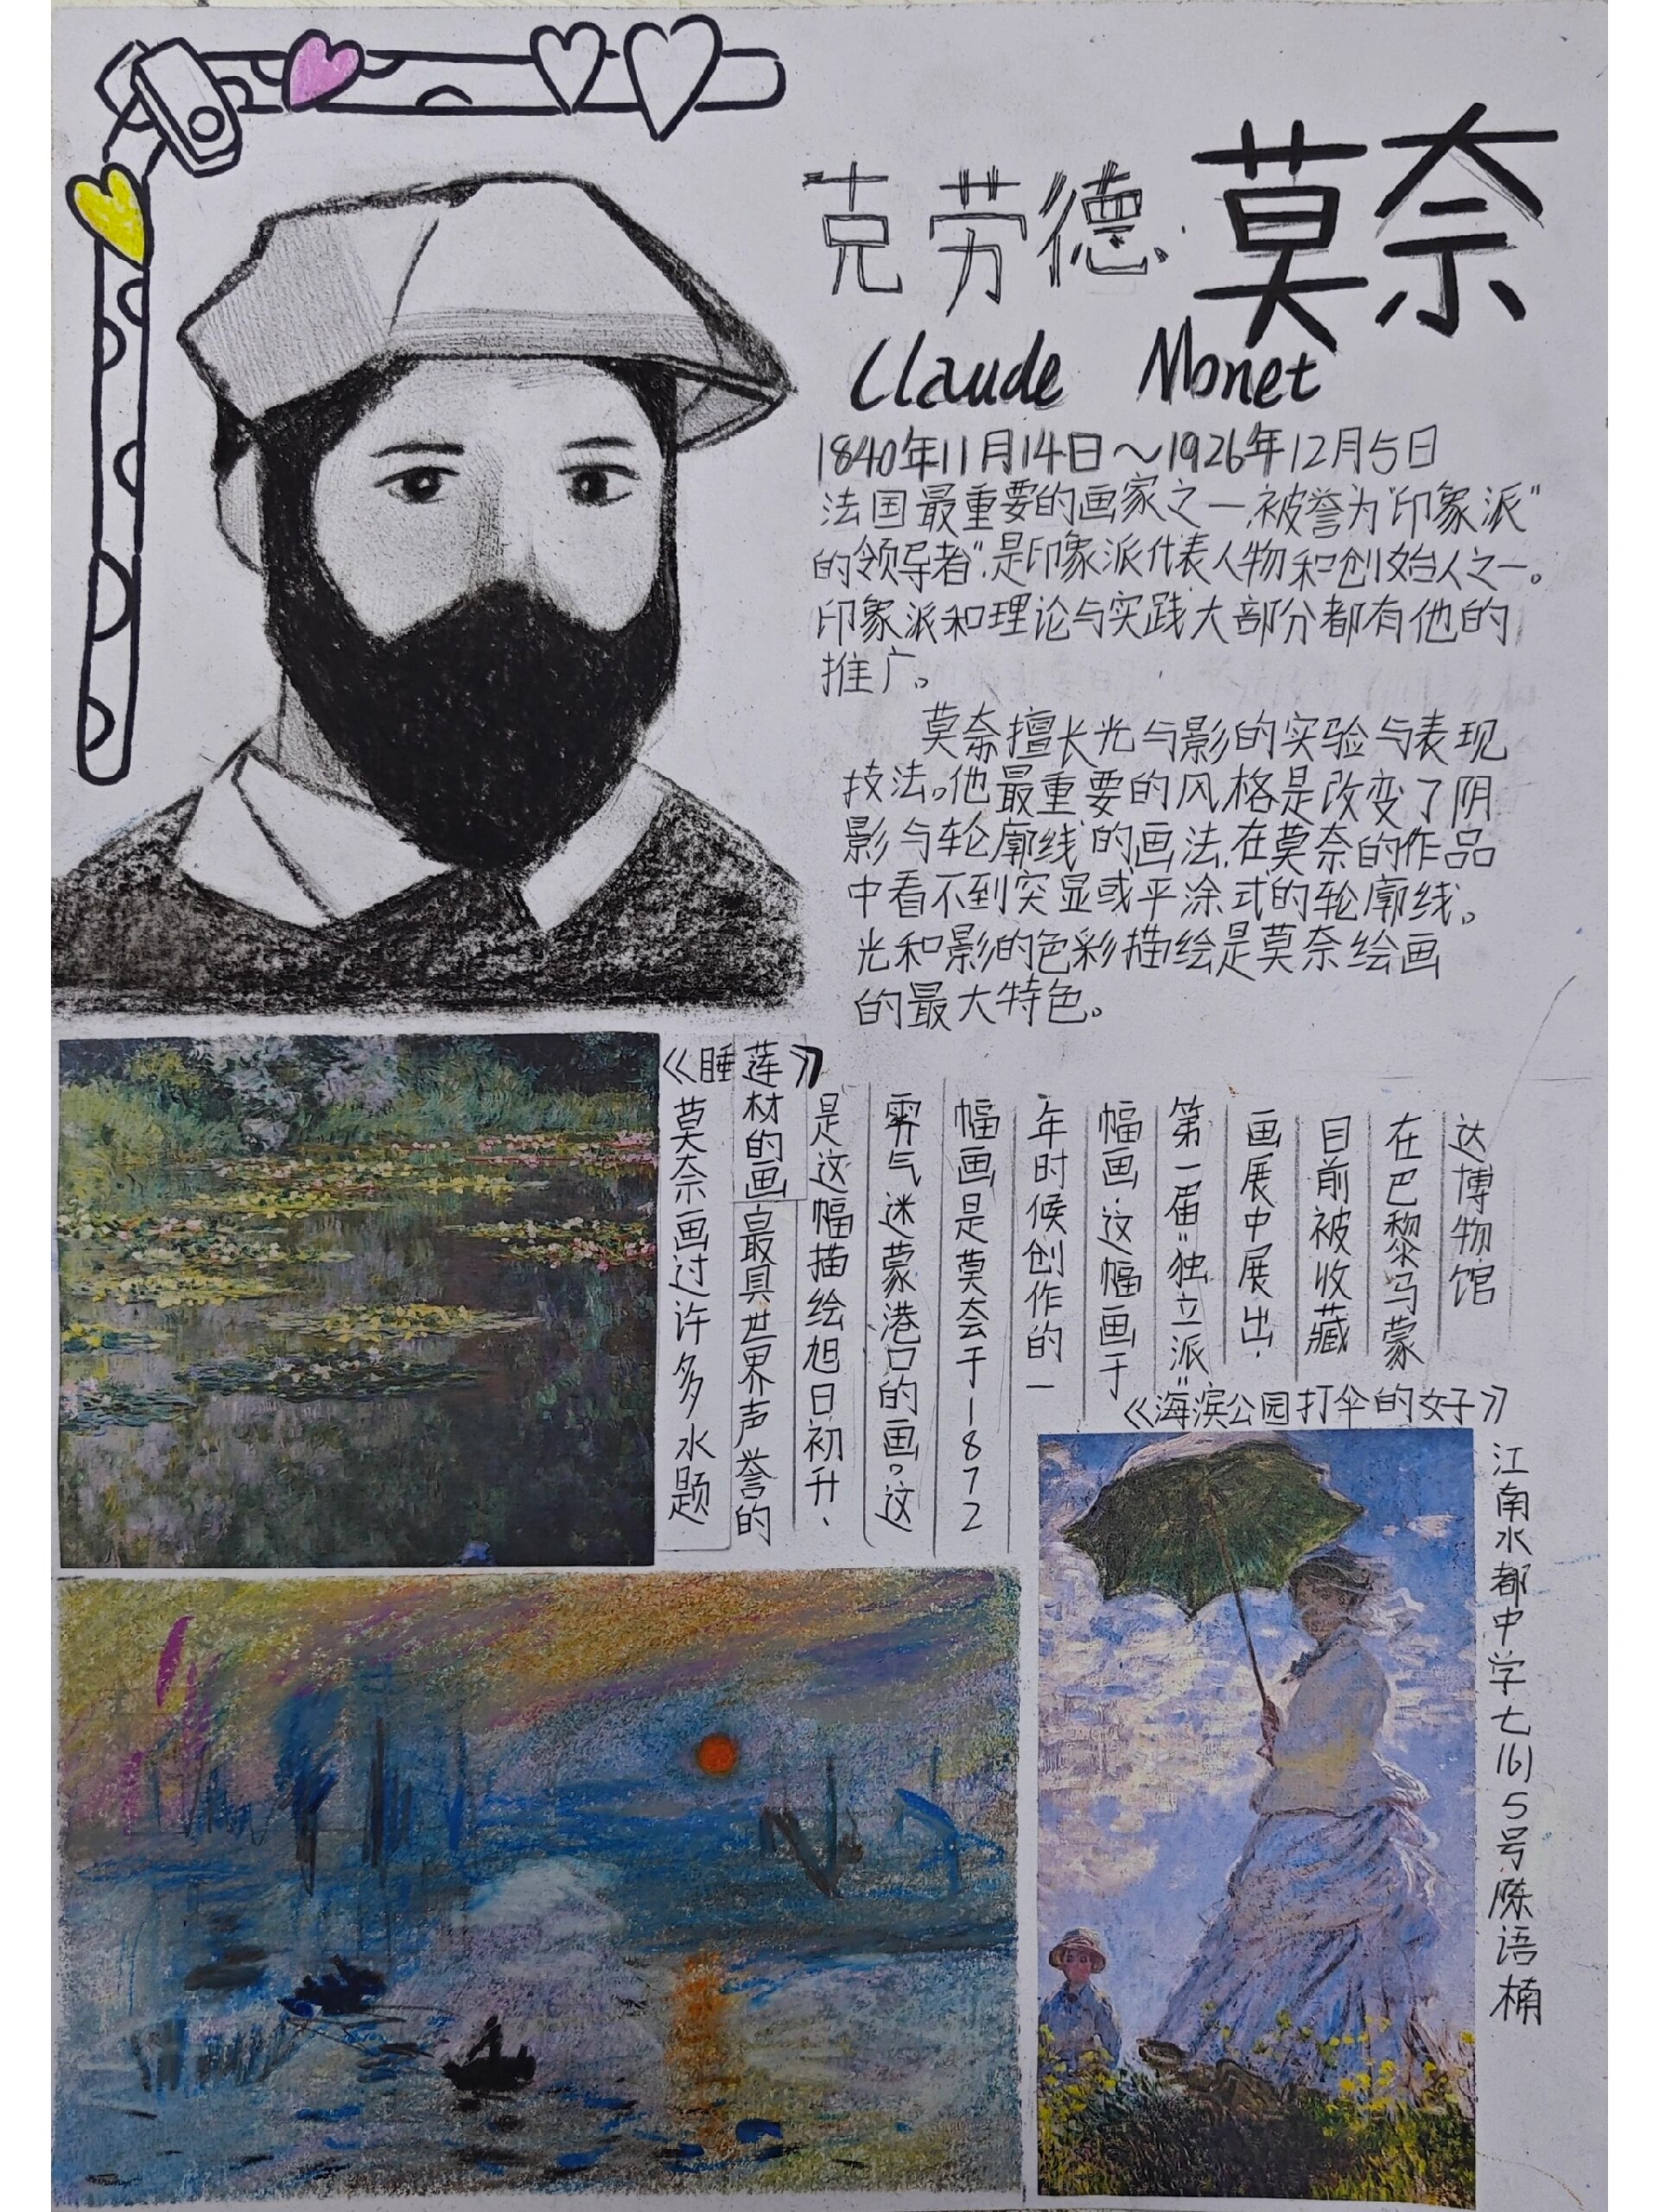 克劳德·莫奈
Claude Monet
1840年11月14日~1926年12月5日
法国最重要的画家之一,被誉为"印象派
的领导者",是印象派代表人物和创始人之一。
印象派和理论与实践大部分都有他的
推广。
莫奈擅长光与影的实验与表现
技法。他最重要的风格是改变了阴
影与轮廓线的画法,在莫奈的作品
中看不到突显或平涂式的轮廓线。
光和影的色彩描绘是莫奈绘画
的最大特色。
《睡莲》
莫奈画过许多水题
材的画,最具世界声誉的
是这幅描绘旭日初升、
雾气迷蒙港口的画。这
幅画是莫奈于1872
年时候创作的一
幅画,这幅画于
第一届"独立派"
画展中展出,
目前被收藏
在巴黎马蒙
达博物馆
《海滨公园打伞的女子》
江南水都中学七(6)5号陈语楠